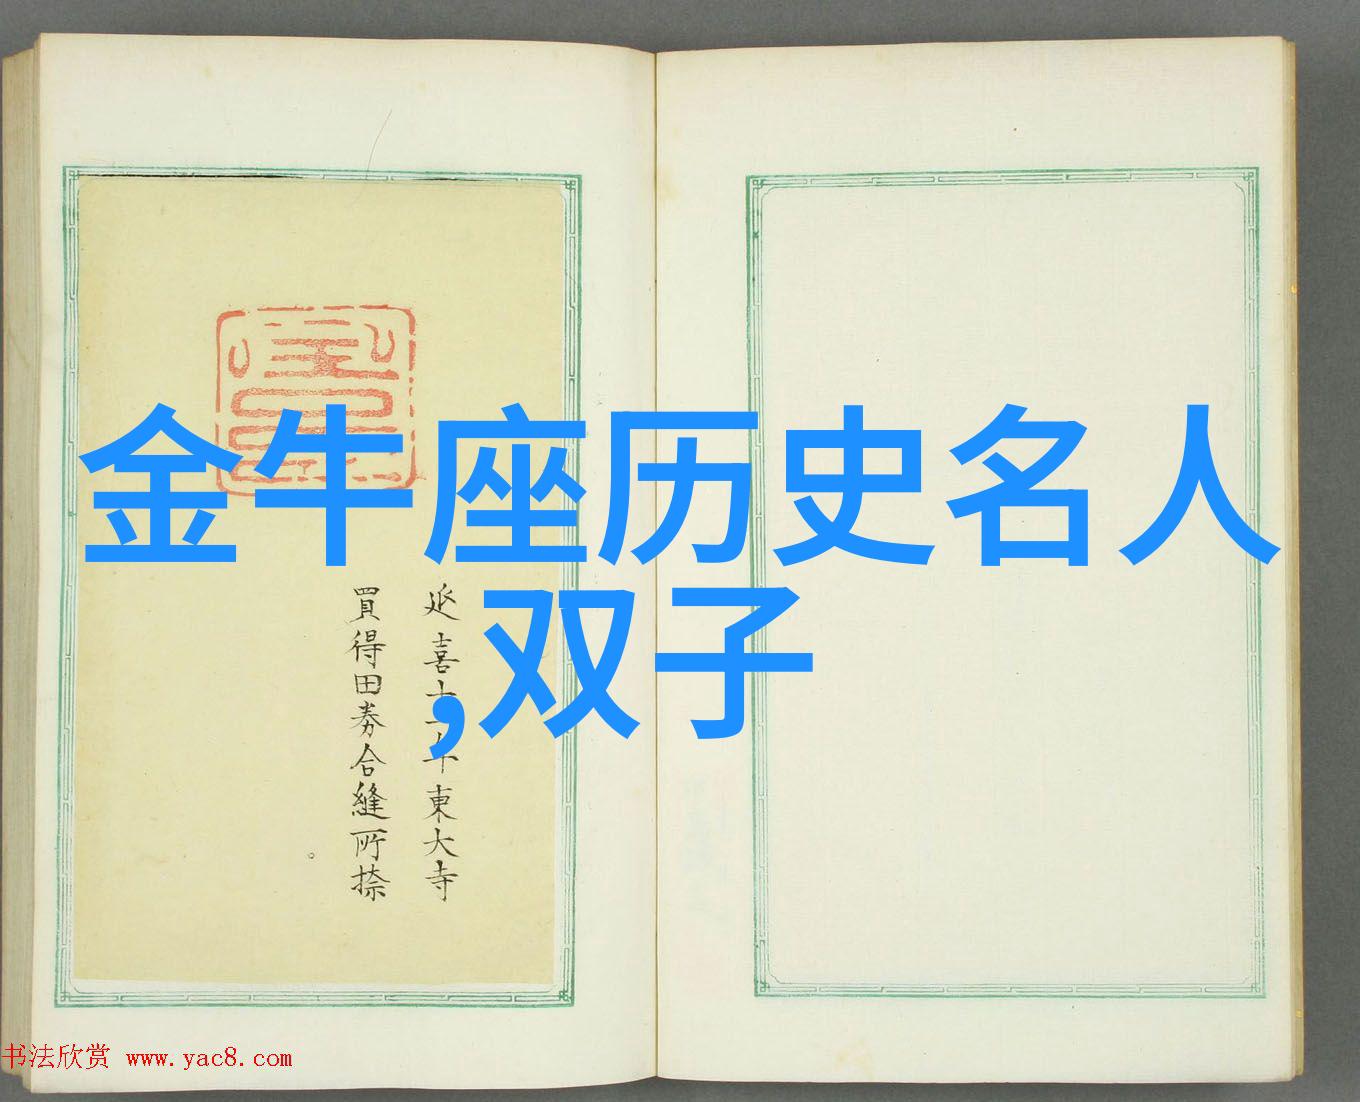 金牛座历史名人
,双子
延喜十一年東大寺
買得田券合縫所捺
书法欣赏 www.yac8.com